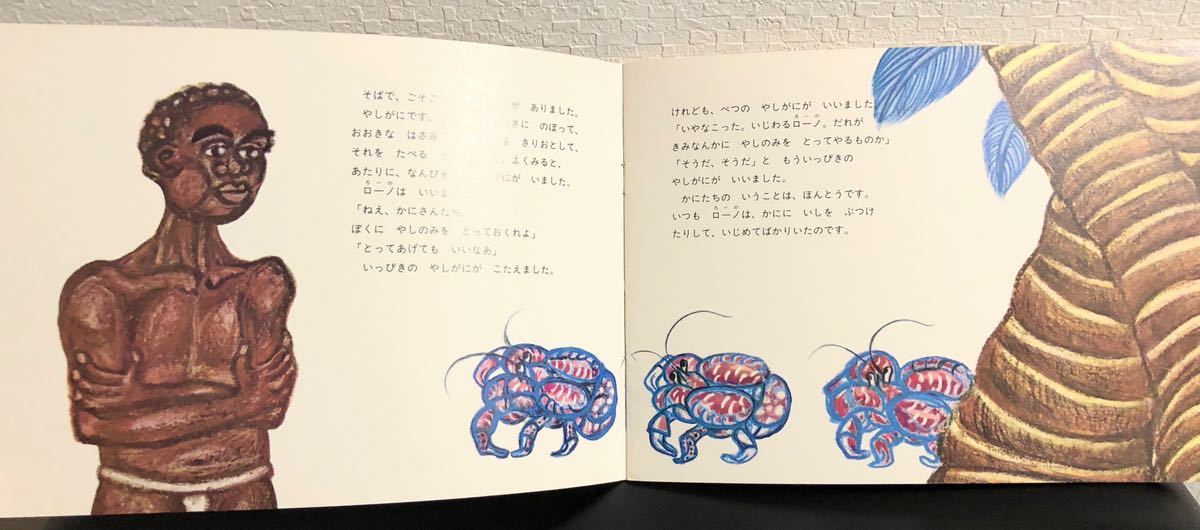 そばで、ごそご が ありました。
やしがにです。 きに のぼって、
おおきな はさみ を きりおとして、
それを たべる よくみると、
あたりに、なんびき がにが いました。
ローノは いいま
「ねえ、かにさんたち。
ぼくに やしのみを とっておくれよ」
「とってあげても いいなあ」
いっぴきの やしがにが こたえました。
けれども、べつの やしがにが いいました
「いやなこった。いじわるローノ。だれが
きみなんかに やしのみを とってやるものか」
「そうだ、そうだ」と もういっぴきの
やしがにが いいました。
かにたちの いうことは、ほんとうです。
いつも ローノは、かにに いしを ぶつけ
たりして、いじめてばかりいたのです。